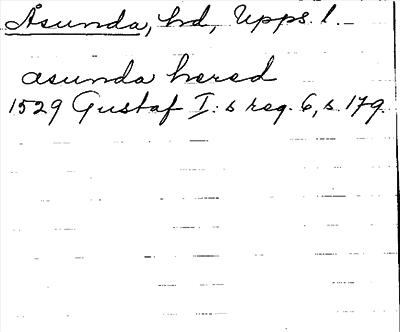 Åsunda, hd, Upps. l. -
asunda hered
1529 Gustaf I:s reg. 6, s. 179.